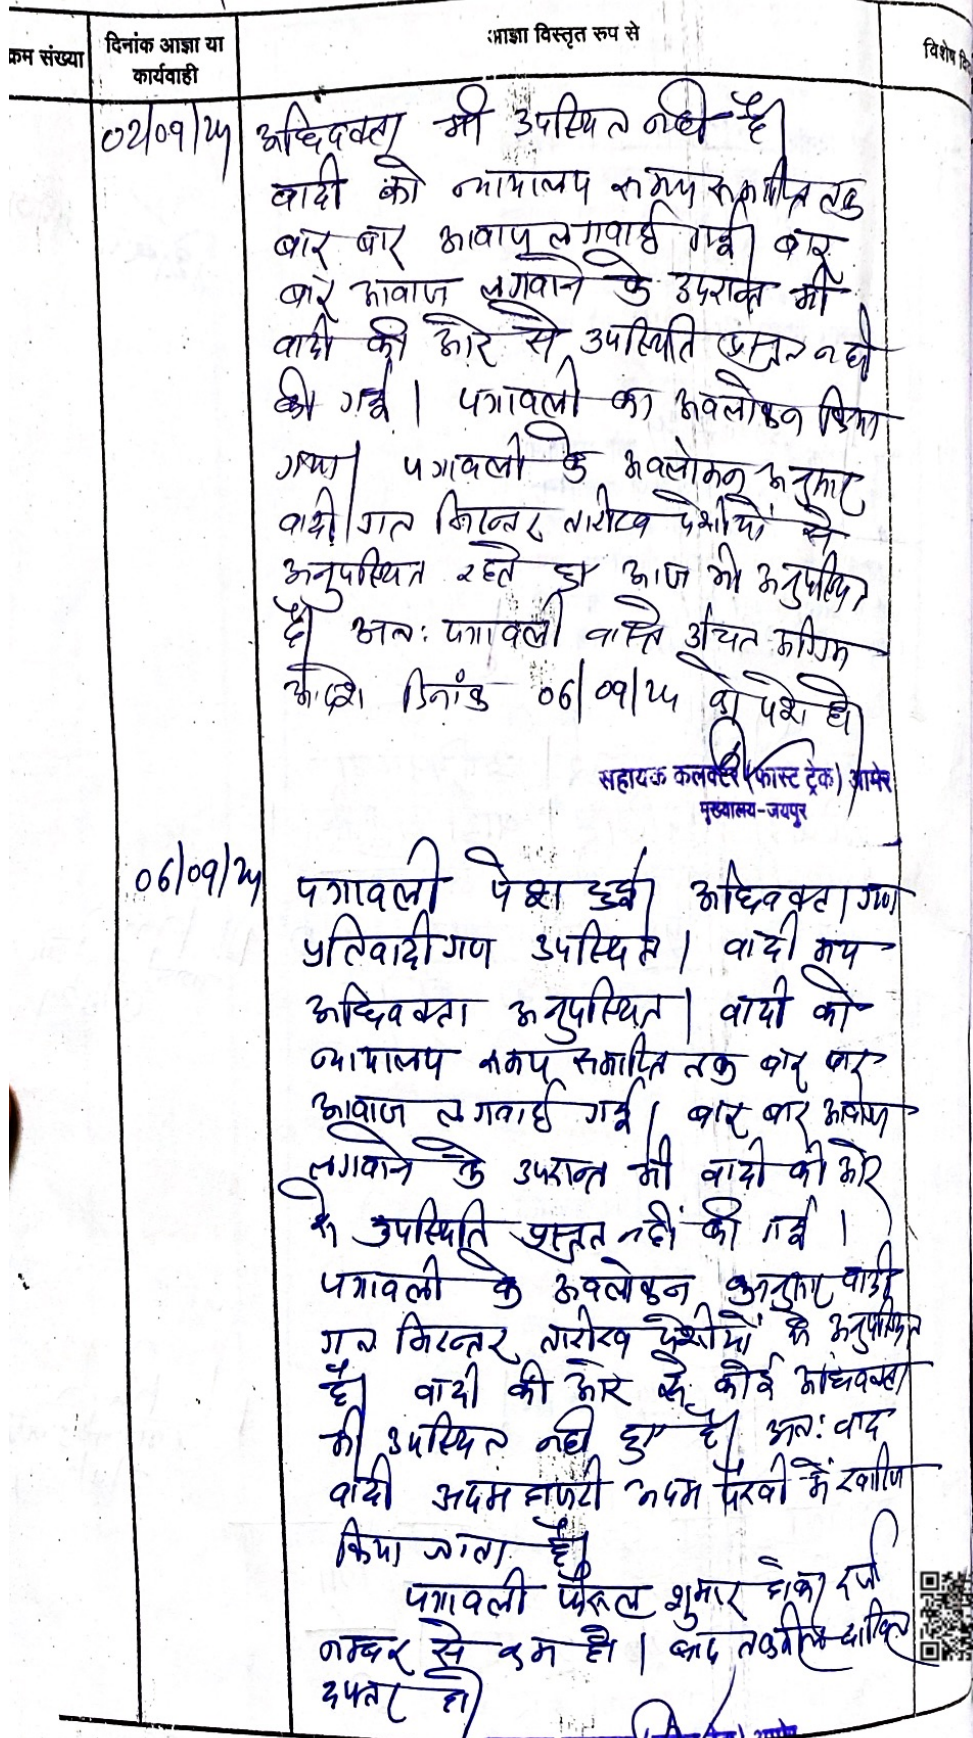 क्रम संख्या
दिनांक आज्ञा या
कार्यवाही
आज्ञा विस्तृत रुप से
विशेष
02/09/24
अधिवक्ता भी उपस्थित नही है।
वादी को न्यायालय समय समाप्ति तक
बार बार आवाज लगवाई गई। बार
बार आवाज लगवाने के उपरान्त भी
वादी की ओर से उपस्थिति प्रस्तुत नही
की गई। पत्रावली का अवलोकन किया
गया। पत्रावली के अवलोकन अनुसार
वादी गत निरन्तर तारीख पेशीयों से
अनुपस्थित रहते हुए आज भी अनुपस्थित
है। अतः पत्रावली वास्ते उचित अग्रिम
आदेश दिनांक 06/09/24 को पेश हो।
सहायक कलक्टर (फास्ट ट्रेक) आमेर
मुख्यालय-जयपुर
06/09/24
पत्रावली पेश हुई। अधिवक्तागण
प्रतिवादीगण उपस्थित। वादी मय
अधिवक्ता अनुपस्थित। वादी को
न्यायालय समय समाप्ति तक बार बार
आवाज लगवाई गई। बार बार आवाज
लगवाने के उपरान्त भी वादी की ओर
से उपस्थिति प्रस्तुत नहीं की गई।
पत्रावली के अवलोकन अनुसार वादी
गत निरन्तर तारीख पेशीयों से अनुपस्थित
है। वादी की ओर से कोई अधिवक्ता
भी उपस्थित नही हुए है। अतः वाद
वादी अदम हाजरी अदम पैरवी में खारिज
किया जाता है।
पत्रावली फैसल शुमार होकर दर्ज
नम्बर से कम हो। बाद तकमील दाखिल
दफ्तर हो।
आमेर